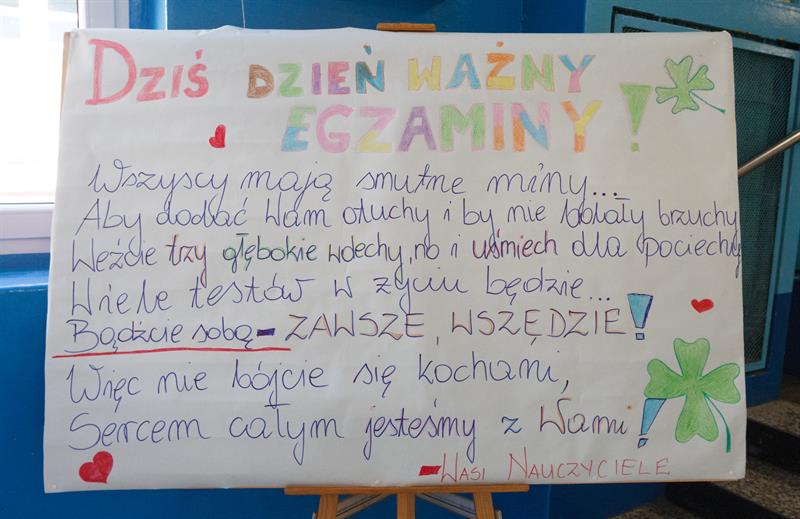 Dziś DZIEŃ WAŻNY
EGZAMINY!
Wszyscy mają smutne miny...
Aby dodać Wam otuchy i by nie bolały brzuchy
Weźcie trzy głębokie wdechy, no i uśmiech dla pociechy
Wiele testów w życiu będzie...
Bądźcie sobą - ZAWSZE, WSZĘDZIE!
Więc nie bójcie się kochani,
Sercem całym jesteśmy z Wami!
- WASI NAUCZYCIELE